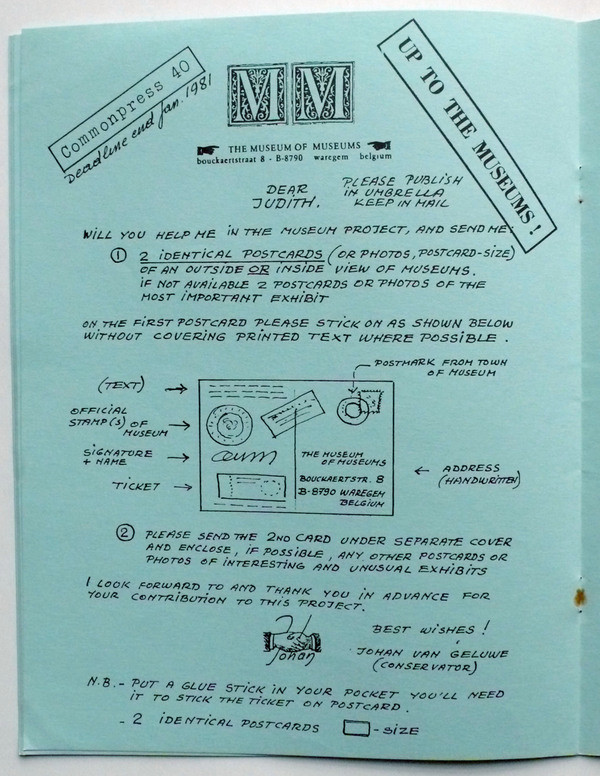 Commonpress 40
Deadline end Jan. 1981
UP TO THE MUSEUMS!
M M
THE MUSEUM OF MUSEUMS
bouckaertstraat 8 - B-8790 waregem belgium
DEAR JUDITH,
PLEASE PUBLISH
IN UMBRELLA
KEEP IN MAIL
WILL YOU HELP ME IN THE MUSEUM PROJECT, AND SEND ME:
① 2 IDENTICAL POSTCARDS (OR PHOTOS, POSTCARD-SIZE)
OF AN OUTSIDE OR INSIDE VIEW OF MUSEUMS.
IF NOT AVAILABLE 2 POSTCARDS OR PHOTOS OF THE
MOST IMPORTANT EXHIBIT
ON THE FIRST POSTCARD PLEASE STICK ON AS SHOWN BELOW
WITHOUT COVERING PRINTED TEXT WHERE POSSIBLE.
POSTMARK FROM TOWN
OF MUSEUM
(TEXT)
OFFICIAL
STAMP(S) OF
MUSEUM
SIGNATURE
+ NAME
TICKET
THE MUSEUM
OF MUSEUMS
BOUCKAERTSTR. 8
B-8790 WAREGEM
BELGIUM
ADDRESS
(HANDWRITTEN)
② PLEASE SEND THE 2ND CARD UNDER SEPARATE COVER
AND ENCLOSE, IF POSSIBLE, ANY OTHER POSTCARDS OR
PHOTOS OF INTERESTING AND UNUSUAL EXHIBITS
I LOOK FORWARD TO AND THANK YOU IN ADVANCE FOR
YOUR CONTRIBUTION TO THIS PROJECT.
Johan
BEST WISHES!
JOHAN VAN GELUWE
(CONSERVATOR)
N.B. - PUT A GLUE STICK IN YOUR POCKET YOU'LL NEED
IT TO STICK THE TICKET ON POSTCARD.
- 2 IDENTICAL POSTCARDS - SIZE